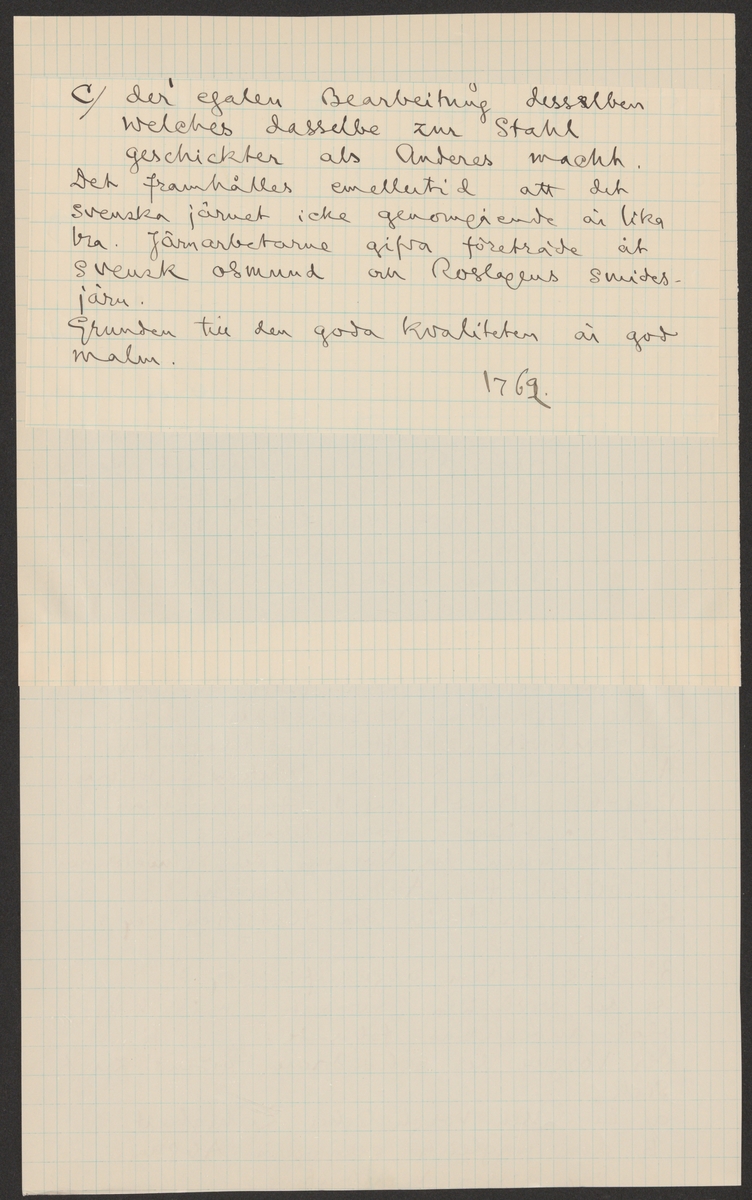 C/ der egalen Bearbeitung desselben
welches dasselbe zur Stahl
geschickter als Anderes macht.
Det framhålles emellertid att det
svenska järnet icke genomgående är lika
bra. Järnarbetarne gifva företräde åt
svensk osmund och Roslagens smides-
järn.
Grunden till den goda kvaliteten är god
malm.
1769.